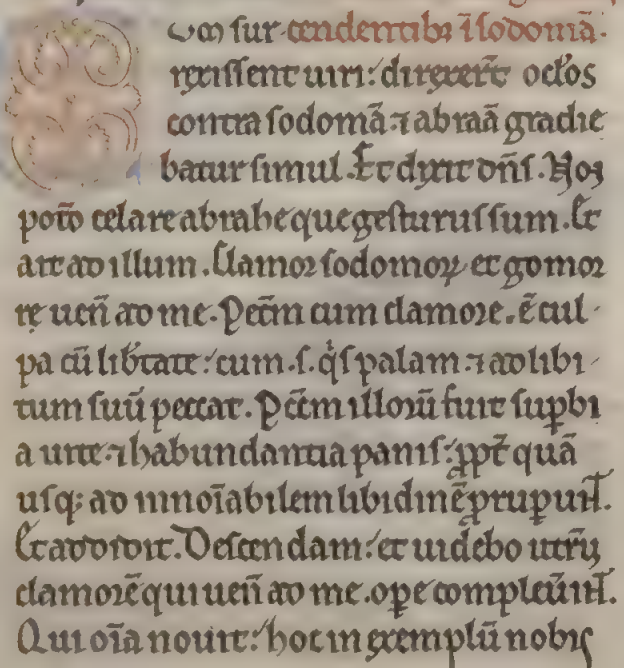 Cum sur tendentibꝫ ī sodomā.
rexissent uiri: direxer̄t oc̄los
contra sodomā ⁊ abraā gradie
batur simul. Et dixit dn̄s. Noꝫ
pot̄o celare abrahe que gesturus sum. Et
ait ad illum. Clamor sodomoꝝ et gomor
rę ueñ ad me. Pecc̄m cum clamore. ē cul
pa cū lib̄tate: cum .s. q̄s palam ⁊ ad libi
tum suū peccat. Pecc̄m illorū fuit suꝑbi
a uite ⁊ habundantia panis: ꝓpt̄ quā
usqꝫ ad innoīabilem libidinē ꝓruꝑuīt.
Et addidit. Descendam: et uidebo utrū
clamorē qui ueñ ad me. oꝑe compleūit.
Qui oīa nouit: hoc in exemplū nobis